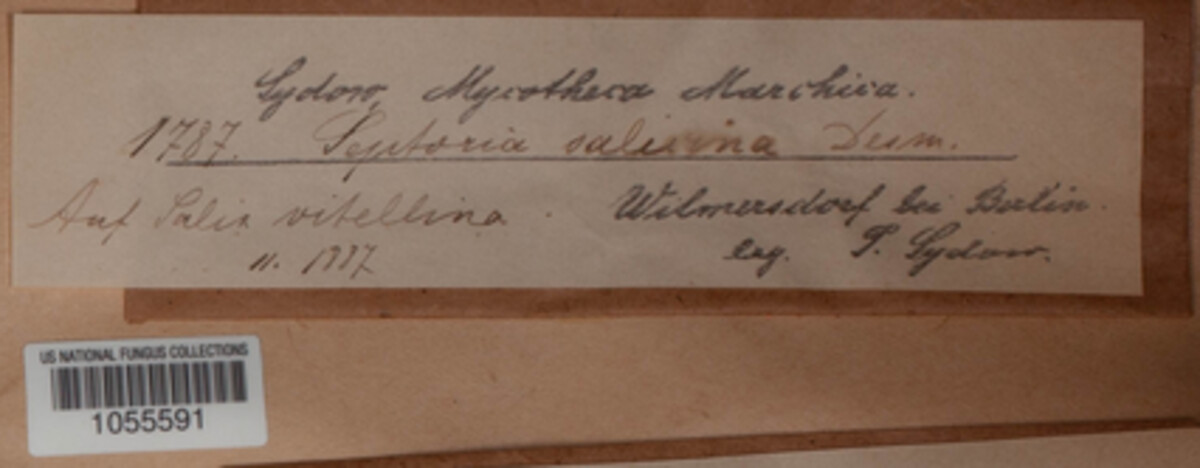 Sydow, Mycotheca Marchica.
1787. Septoria salicina Desm.
Auf Salix vitellina. Wilmersdorf bei Berlin.
11. 1887 leg. P. Sydow.
US NATIONAL FUNGUS COLLECTIONS
1055591